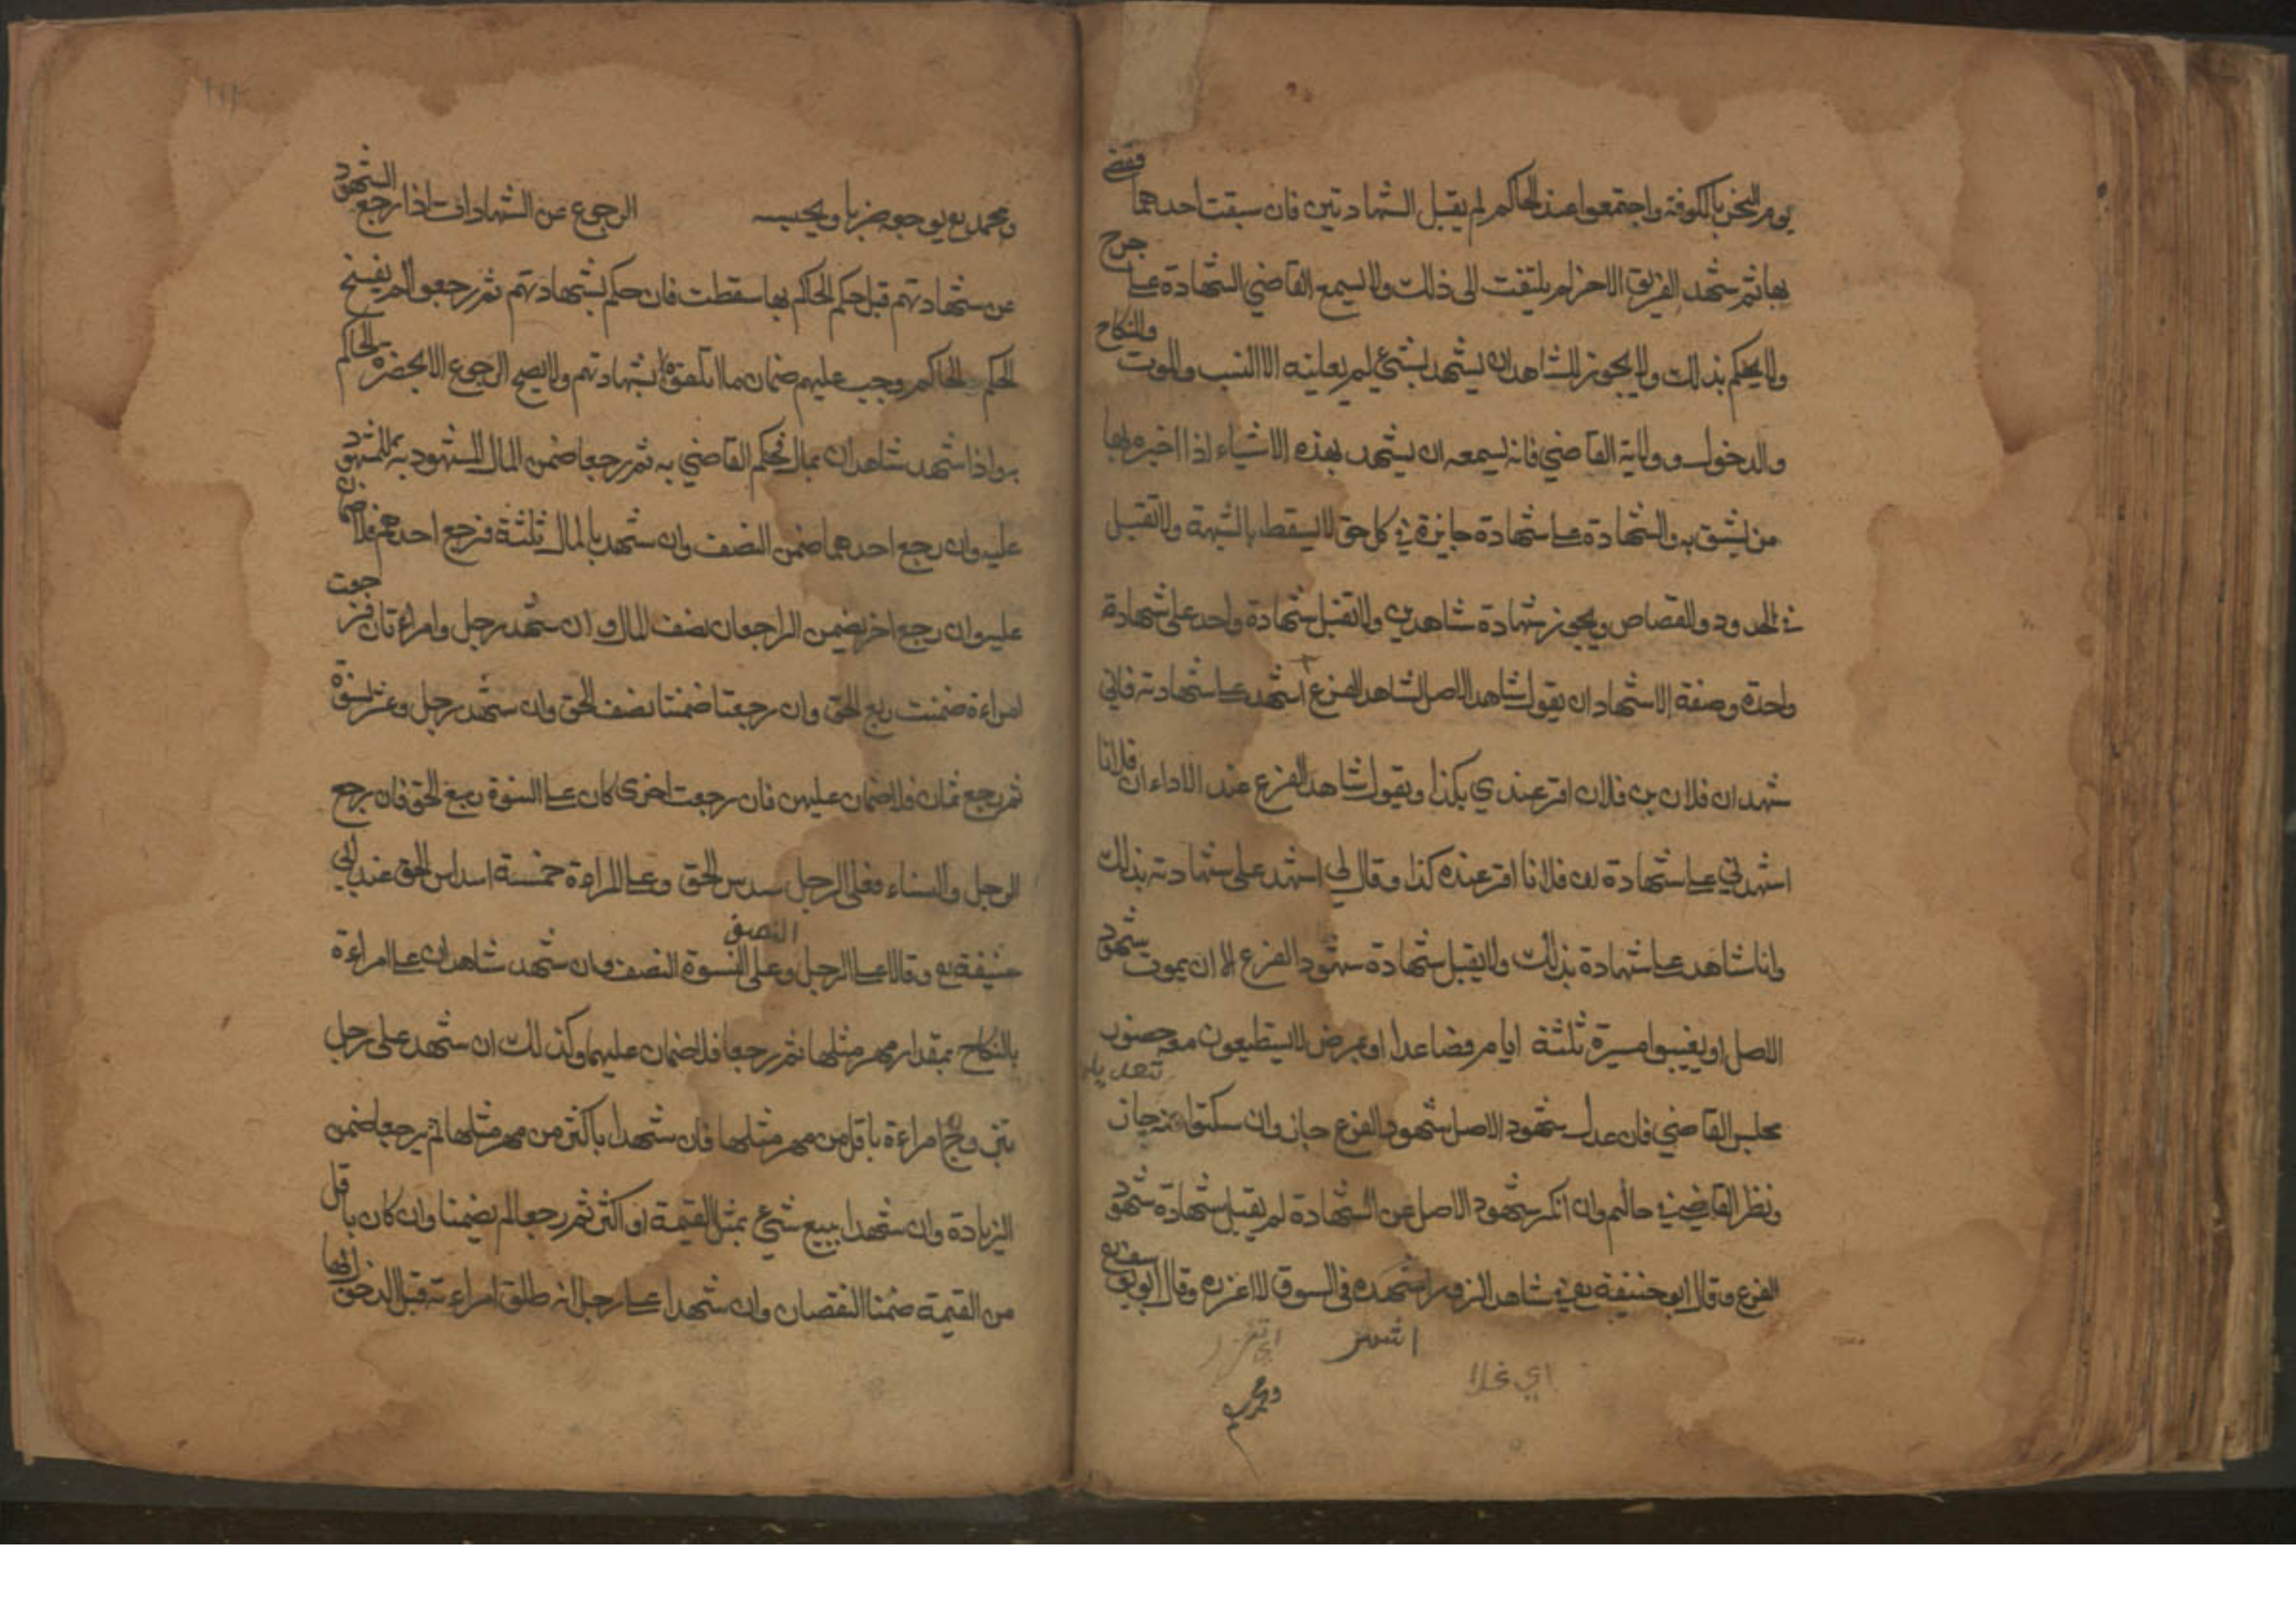 يوم النحر بالكوفة واجتمعوا عند الحاكم لم يقبل الشهادتين فان سبقت احدهما فقضى
بها ثم شهد الفريق الاخر لم يلتفت الى ذلك ولا يسمع القاضي الشهادة على جرح
ولا يحكم بذلك ولا يجوز للشاهد ان يشهد بشيء لم يعاينه الا النسب والموت والنكاح
والدخول وولاية القاضي فانه يسعه ان يشهد بهذه الاشياء اذا اخبره بها
من يثق به والشهادة على شهادة جايزة في كل حق لا يسقط بالشبهة ولا تقبل
في الحدود والقصاص ويجوز شهادة شاهدين ولا تقبل شهادة واحد على شهادة
واحدة وصفة الاشهاد ان يقول شاهد الاصل لشاهد الفرع اشهد على شهادته فاني
شهد ان فلان بن فلان اقر عندي بكذا ويقول شاهد الفرع عند الاداء ان فلانا
اشهدني على شهادة ان فلانا اقر عنده كذا وقال لي اشهد على شهادته بذلك
وانا شاهد على شهادة بذلك ولا يقبل شهادة شهود الفرع الا ان يموت شهود
الاصل او يغيبوا مسيرة ثلثة ايام فصاعدا او بمرض لا يستطيعون معه حضور
مجلس القاضي فان عدل شهود الاصل شهود الفرع جاز وان سكتوا عنه جاز
تعديل
ونظر القاضي في حالهم وان انكر شهود الاصل عن الشهادة لم يقبل شهادة شهود
الفرع وقال ابو حنيفة رح في شاهد الزور اشهده في السوق لا اعزره وقال ابو يوسف رح
اي تعزر
اي غلا
ومحمد
ومحمد رح يوجعه ضربا ويحبسه الرجوع عن الشهادات اذا رجع الشهود
عن شهادتهم قبل حكم الحاكم بها سقطت فان حكم بشهادتهم ثم رجعوا لم يفسخ
الحكم الحاكم وجب عليهم ضمان ما اتلفوه بشهادتهم ولا يصح الرجوع الا بحضرة الحاكم
واذا شهد شاهدان بمال فحكم القاضي به ثم رجعا ضمن المال المشهود به للمشهود
عليه وان رجع احدهما ضمن النصف وان شهد بالمال ثلثة فرجع احدهم فلا ضمان
عليه وان رجع اخر يضمن الراجعان نصف المال وان شهد رجل وامراءتان فرجعت
امراءة ضمنت ربع الحق وان رجعتا ضمنتا نصف الحق وان شهد رجل وعشر نسوة
ثم رجع ثمان فلا ضمان عليهن فان رجعت اخرى كان على النسوة ربع الحق فان رجع
الرجل والنساء فعلى الرجل سدس الحق وعلى المراءة خمسة اسداس الحق عند ابي
حنيفة رح وقالا على الرجل النصف وعلى النسوة النصف وان شهد شاهدان على امراءة
بالنكاح بمقدار مهر مثلها ثم رجعا فلا ضمان عليهما وكذلك ان شهد على رجل
بتزويج امراءة باقل من مهر مثلها فان شهدا باكثر من مهر مثلها ثم رجعا ضمن
الزيادة وان شهدا ببيع شيء بمثل القيمة او اكثر ثم رجعا لم يضمنا وان كان باقل
من القيمة ضمنا النقصان وان شهدا على رجل انه طلق امراءته قبل الدخول بها